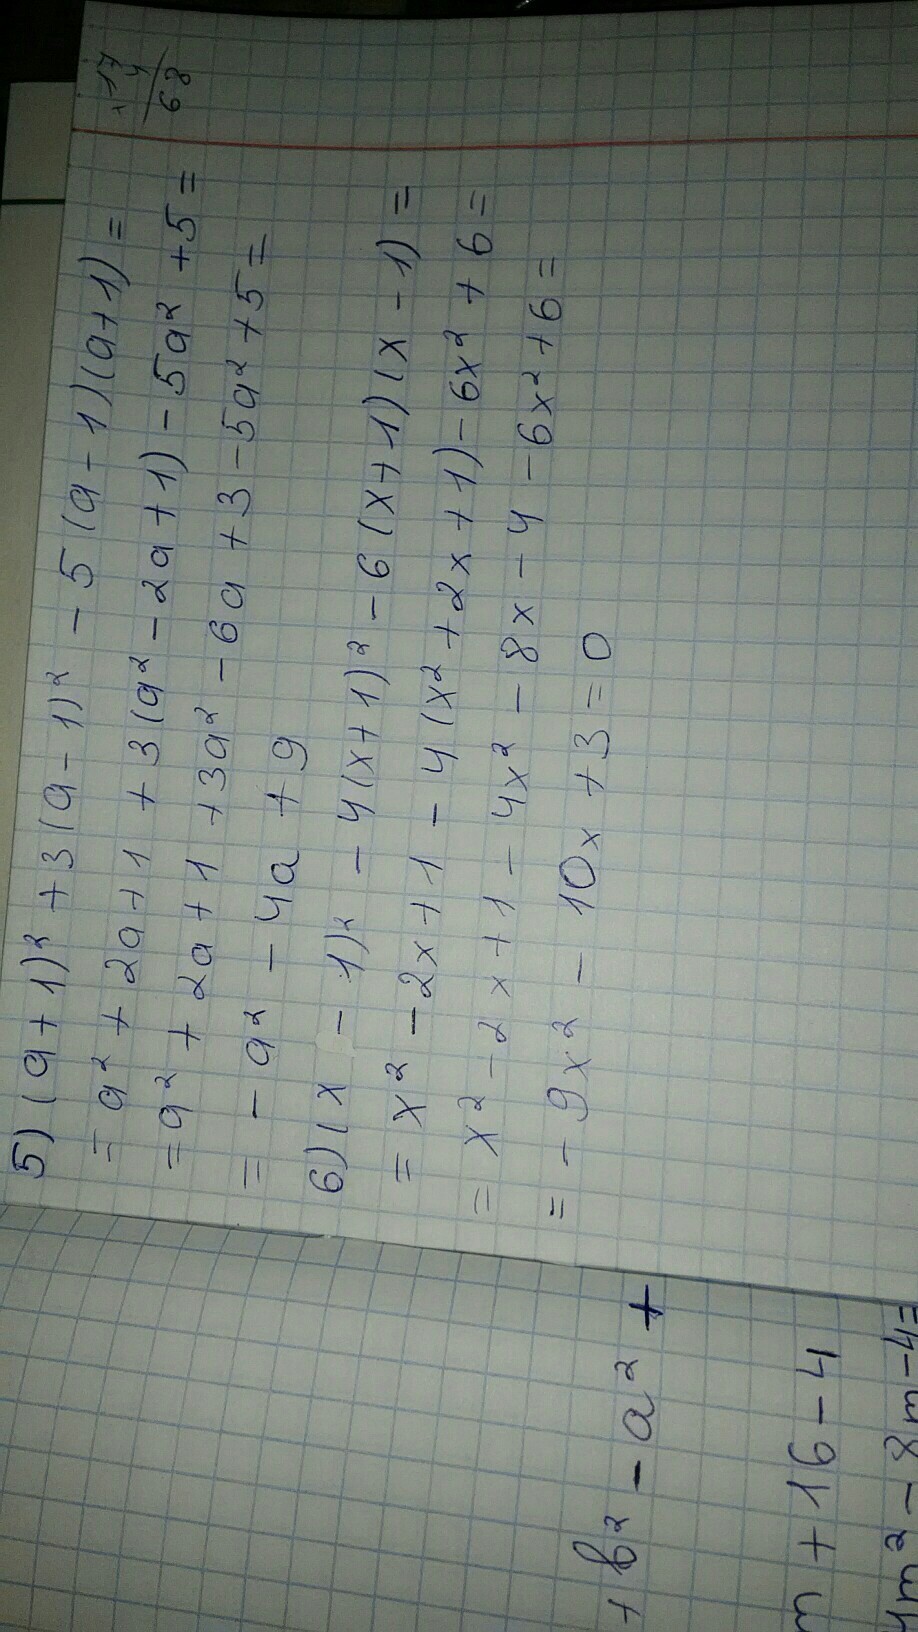 17
4
68
5) (a+1)² + 3(a-1)² - 5(a-1)(a+1) =
= a² + 2a + 1 + 3(a² - 2a + 1) - 5a² + 5 =
= a² + 2a + 1 + 3a² - 6a + 3 - 5a² + 5 =
= - a² - 4a + 9
6) (x - 1)² - 4(x+1)² - 6(x+1)(x-1) =
= x² - 2x + 1 - 4(x² + 2x + 1) - 6x² + 6 =
= x² - 2x + 1 - 4x² - 8x - 4 - 6x² + 6 =
= - 9x² - 10x + 3 = 0
+ b² - a² +
m + 16 - 4
4m² - 8m - 4 =